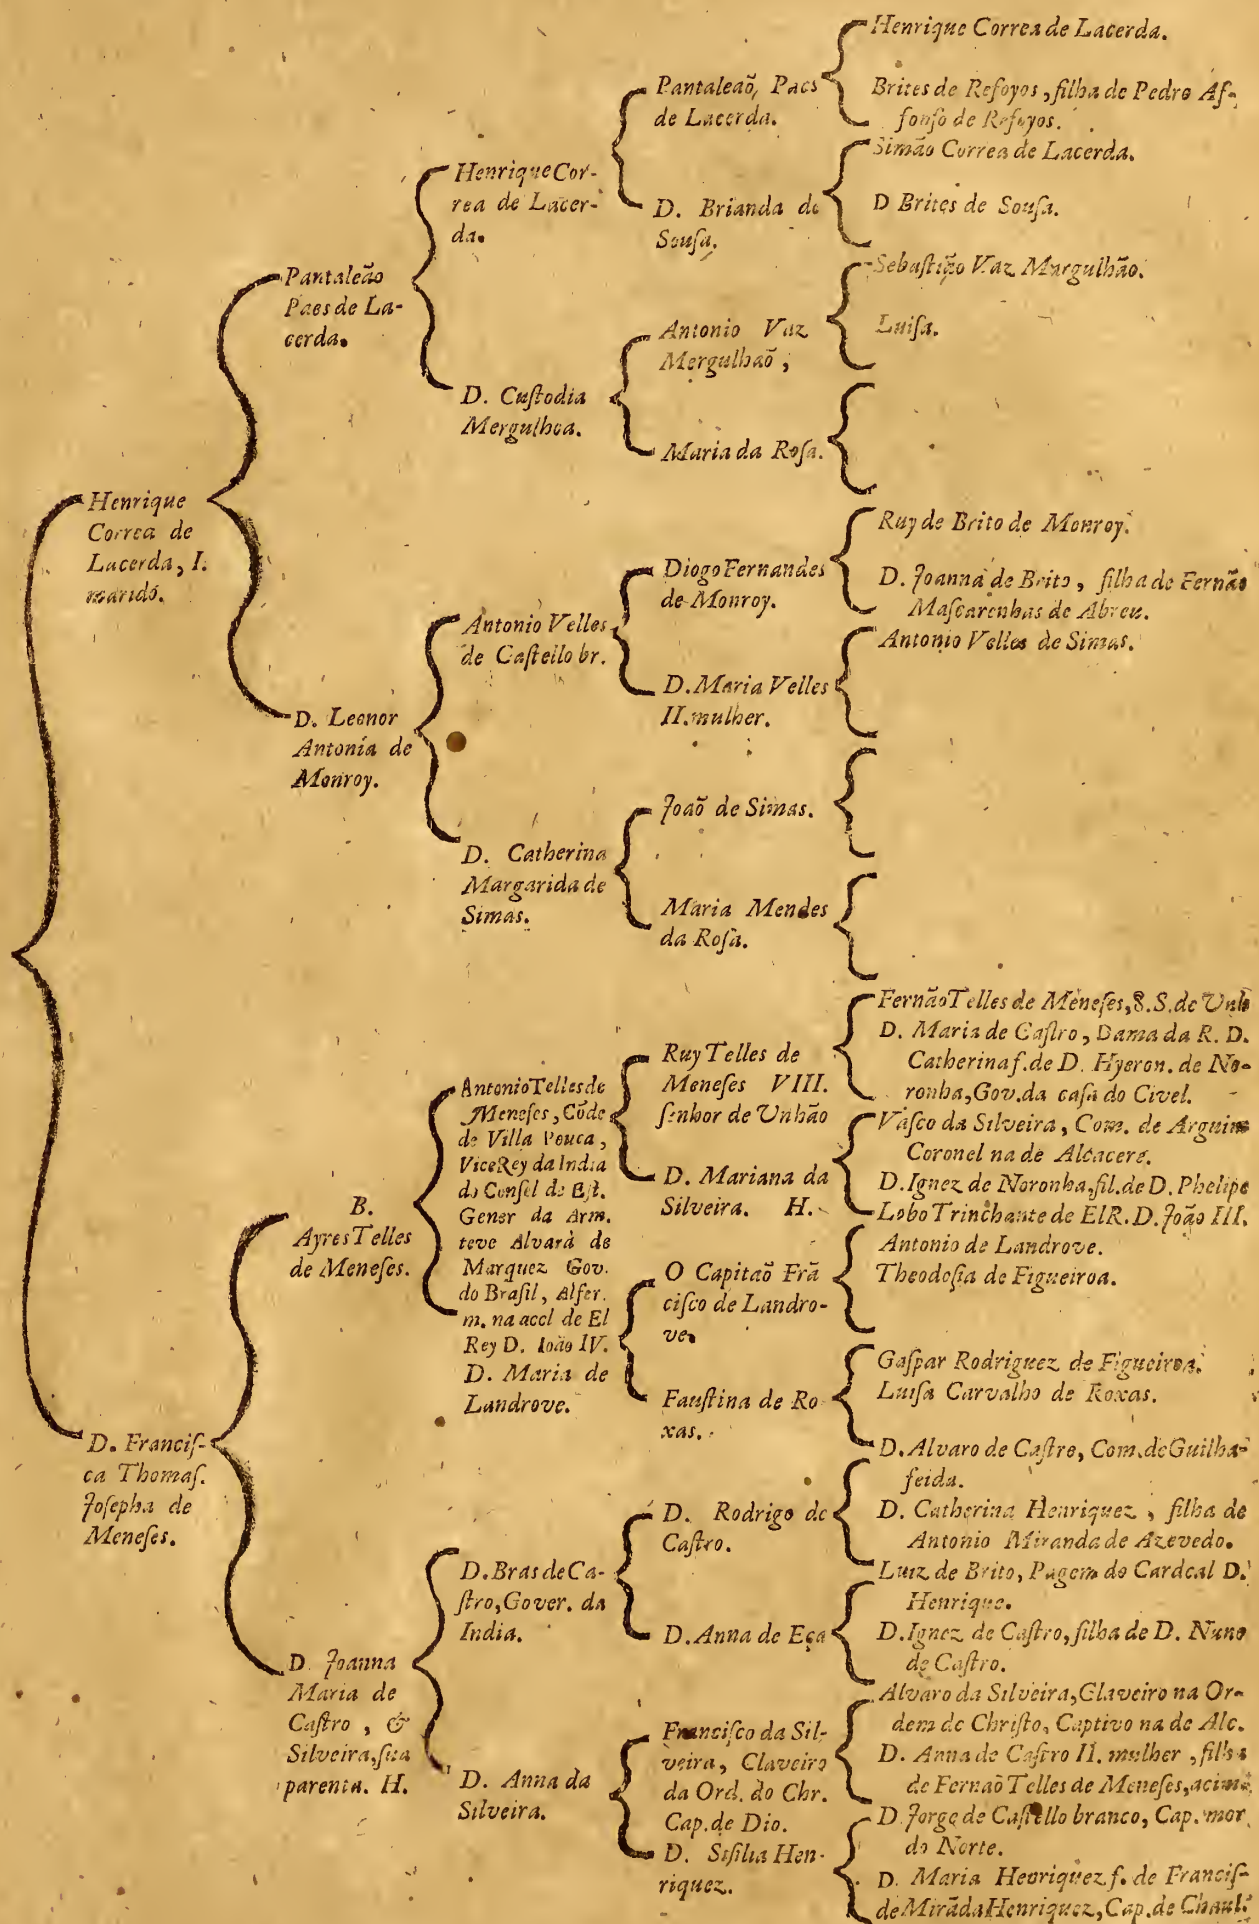 Henrique
Correa de
Lacerda, I.
marido.
D. Franciſ-
ca Thomaſ.
Joſepha de
Meneſes.
Pantaleão
Paes de La-
cerda.
D. Leonor
Antonia de
Monroy.
B.
Ayres Telles
de Meneſes.
D. Joanna
Maria de
Caſtro, &
Silveira, ſua
parenta. H.
Henrique Cor-
rea de Lacer-
da.
D. Cuſtodia
Mergulhoa.
Antonio Velles
de Caſtello br.
D. Catherina
Margarida de
Simas.
Antonio Telles de
Meneſes, Cõde
de Villa Pouca,
ViceRey da India
do Conſel de Eſt.
Gener da Arm.
teve Alvarà de
Marquez Gov.
do Braſil, Alfer.
m. na accl de El
Rey D. Ioão IV.
D. Maria de
Landrove.
D. Bras de Ca-
ſtro, Gover. da
India.
D. Anna da
Silveira.
Pantaleaõ, Paes
de Lacerda.
D. Brianda de
Souſa.
Antonio Vaz
Mergulhaõ,
Maria da Roſa.
Diogo Fernandes
de Monroy.
D. Maria Velles
II. mulher.
Joaõ de Simas.
Maria Mendes
da Roſa.
Ruy Telles de
Meneſes VIII.
ſenhor de Unhão
D. Mariana da
Silveira. H.
O Capitaõ Frã
ciſco de Landro-
ve.
Fauſtina de Ro
xas.
D. Rodrigo de
Caſtro.
D. Anna de Eça
Franciſco da Sil-
veira, Claveiro
da Ord. do Chr.
Cap. de Dio.
D. Siſilia Hen-
riquez.
Henrique Correa de Lacerda.
Brites de Refoyos, filha de Pedro Af-
fonſo de Refoyos.
Simão Correa de Lacerda.
D Brites de Souſa.
Sebaſtião Vaz Margulhão.
Luiſa.
Ruy de Brito de Monroy.
D. Joanna de Brito, filha de Fernão
Maſcarenhas de Abreu.
Antonio Velles de Simas.
Fernão Telles de Meneſes, 8. S. de Unh
D. Maria de Caſtro, Dama da R. D.
Catherina f. de D. Hyeron. de No-
ronha, Gov. da caſa do Civel.
Vaſco da Silveira, Com. de Arguim
Coronel na de Alcacere.
D. Ignez de Noronha, fil. de D. Phelipe
Lobo Trinchante de ElR. D. João III.
Antonio de Landrove.
Theodoſia de Figueiroa.
Gaſpar Rodriguez de Figueiroa.
Luiſa Carvalho de Roxas.
D. Alvaro de Caſtro, Com. de Guilha-
feida.
D. Catherina Henriquez, filha de
Antonio Miranda de Azevedo.
Luiz de Brito, Pagem do Cardeal D.
Henrique.
D. Ignez de Caſtro, filha de D. Nuno
de Caſtro.
Alvaro da Silveira, Claveiro na Or-
dem de Chriſto, Captivo na de Alc.
D. Anna de Caſtro II. mulher, filha
de Fernaõ Telles de Meneſes, acima.
D. Jorge de Caſtello branco, Cap. mor
do Norte.
D. Maria Henriquez f. de Franciſ-
de Mirãda Henriquez, Cap. de Chaul.